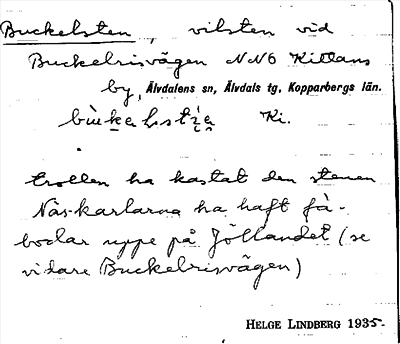 Buckelsten, vilsten vid
Buckelrisvägen NNO Kittans
by, Älvdalens sn, Älvdals tg, Kopparbergs län.
Ki.
trollen ha kastat den stenen
Näs-karlarna ha haft fä-
bodar uppe på Jöllandet (se
vidare Buckelrisvägen)
HELGE LINDBERG 1935.